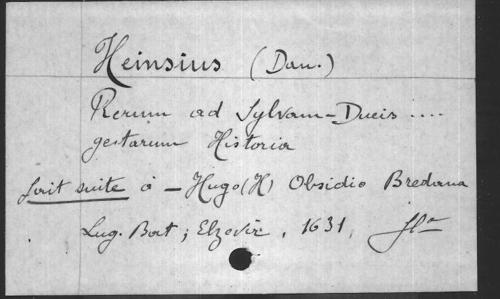 Heinsius (Dan.)
Rerum ad Sylvam-Ducis ....
gestarum Historia
fait suite à - Hugo (H) Obsidio Bredana
Lug. Bat ; Elzevir , 1631, fl°